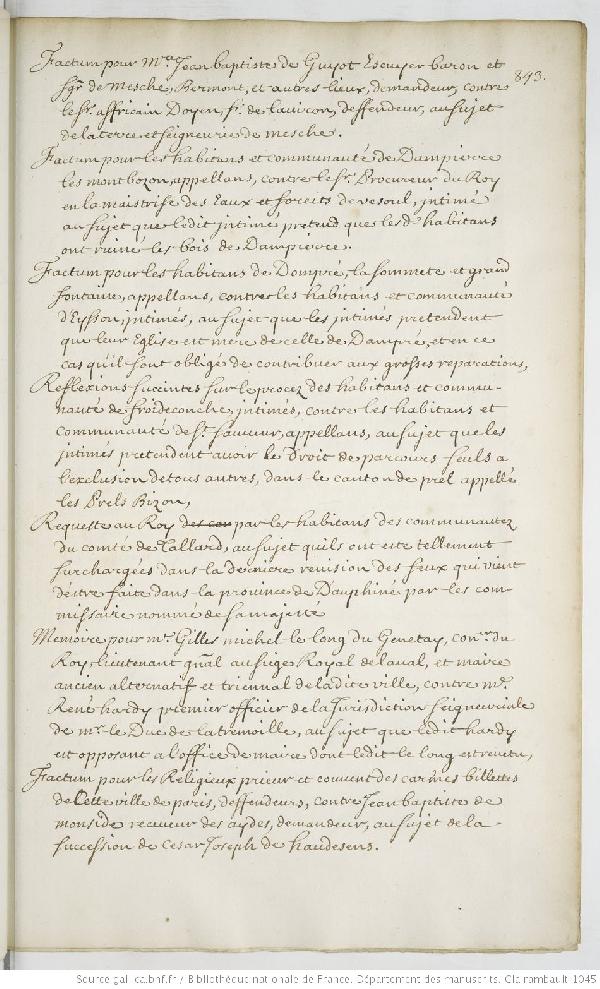 Factum pour Mre Jean baptiste de Guyot Escuyer baron et
sgr de mesche, Bermont, et autres lieux, demandeur, contre
843.
le sr. affricain Doyen, sr. de lauiron, deffendeur, au sujet
de la terre et seigneurie de mesche.
Factum pour les habitans et communauté de Dampierre
les montbozon, appellans, contre le sr. Procureur du Roy
en la maistrise des Eaux et forests de vesoul, intimé
au sujet que ledit intimé pretend que lesd. habitans
ont ruiné les bois de Dampierre.
Factum pour les habitans de Dompré, la sommete et grand
fontaine, appellans, contre les habitans et communauté
d'Eysson, intimés, au sujet que les intimés pretendent
que leur Eglise est mere de celle de Dampré, et en ce
cas qu'ils sont obligés de contribuer aux grosses reparations,
Reflexions succintes sur le procez des habitans et commu-
nauté de froideconche, intimés, contre les habitans et
communauté de st. sauveur, appellans, au sujet que les
intimés pretendent avoir le Droit de parcours seuls a
l'exclusion de tous autres, dans le canton de prel appellé
les Prels Bizon,
Requeste au Roy des com par les habitans des communautez
du comté de Tallard, au sujet qu'ils ont esté tellement
surchargées dans la derniere revision des feux qui vient
d'estre faite dans la province de Dauphiné par les com-
missaire nommé de sa majesté
Memoire pour mr. Gilles michel le long du Genetay, coner. du
Roy, lieutenant gnal au siege Royal de laval, et maire
ancien alternatif et triennal de ladite ville, contre mr.
René hardy premier officier de la Jurisdiction seigneuriale
de mr. le Duc de la tremoille, au sujet que ledit hardy
est opposant a l'office de maire dont ledit le long est revetu,
Factum pour les Religieux prieur et couvent des carmes billettes
de Cette ville de paris, deffendeurs, contre Jean baptiste de
monside receveur des aydes, demandeur, au sujet de la
succession de Cesar Joseph de haudesens.
Source gallica.bnf.fr / Bibliothèque nationale de France. Département des manuscrits. Clairambault 1045